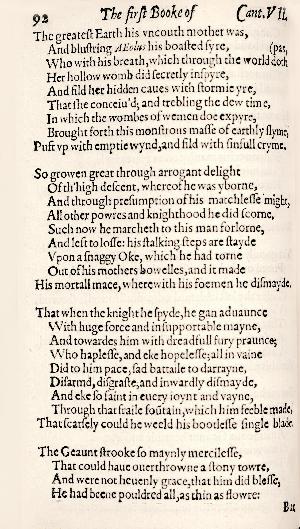 92 The first Booke of Cant. VII.
The greatest Earth his vncouth mother was,
And blustring AEolus his boasted syre, (pas,
Who with his breath, which through the world doth
Her hollow womb did secretly inspyre,
And fild her hidden caues with stormie yre,
That she conceiu'd; and trebling the dew time,
In which the wombes of wemen doe expyre,
Brought forth this monstrous masse of earthly slyme,
Puft vp with emptie wynd, and fild with sinfull cryme.
So growen great through arrogant delight
Of th'high descent, whereof he was yborne,
And through presumption of his matchlesse might,
All other powres and knighthood he did scorne,
Such now he marcheth to this man forlorne,
And left to losse: his stalking steps are stayde
Vpon a snaggy Oke, which he had torne
Out of his mothers bowelles, and it made
His mortall mace, wherewith his foemen he dismayde.
That when the knight he spyde, he gan aduaunce
With huge force and insupportable mayne,
And towardes him with dreadfull fury praunce;
Who haplesse, and eke hopelesse; all in vaine
Did to him pace, sad battaile to darrayne,
Disarmd, disgraste, and inwardly dismayde,
And eke so faint in euery ioynt and vayne,
Through that fraile foūtain, which him feeble made,
That scarsely could he weeld his bootlesse single blade.
The Geaunt strooke so maynly mercilesse,
That could haue ouerthrowne a stony towre,
And were not heuenly grace, that him did blesse,
He had beene pouldred all, as thin as flowre:
But